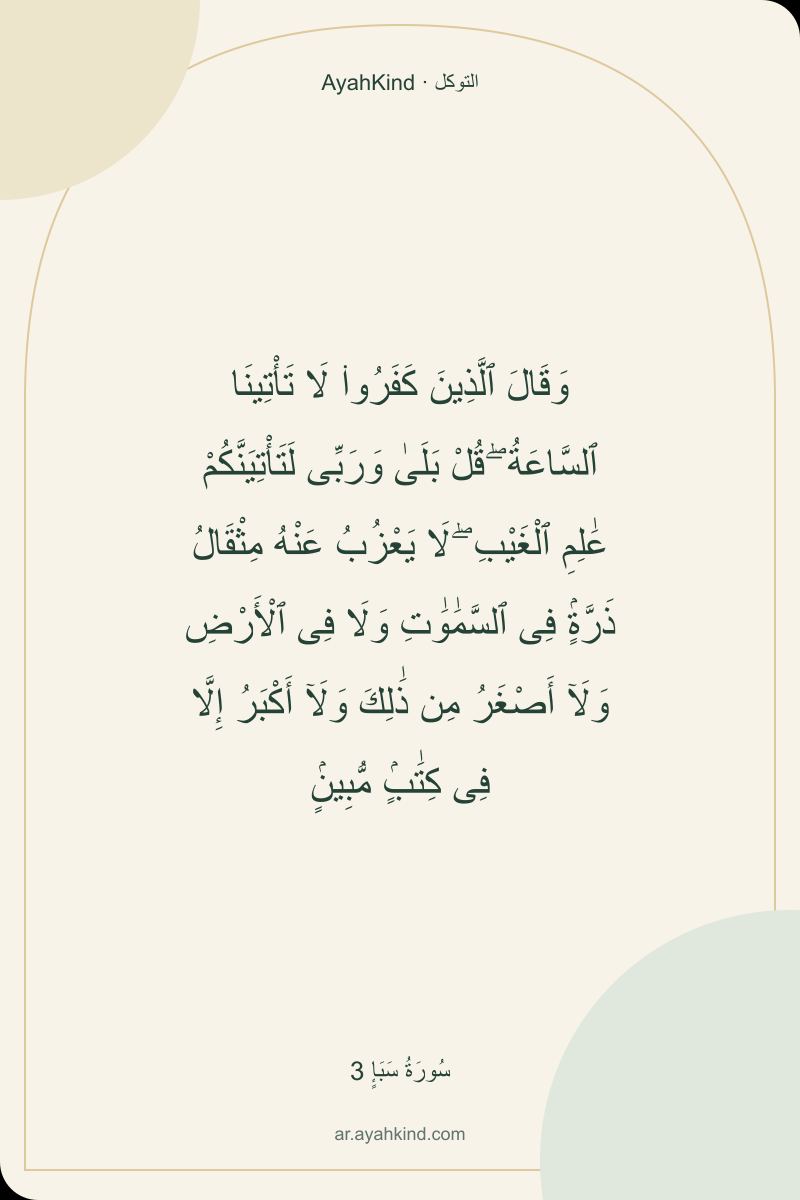 AyahKind · التوكل
وَقَالَ ٱلَّذِينَ كَفَرُوا۟ لَا تَأْتِينَا
ٱلسَّاعَةُ ۖ قُلْ بَلَىٰ وَرَبِّى لَتَأْتِيَنَّكُمْ
عَٰلِمِ ٱلْغَيْبِ ۖ لَا يَعْزُبُ عَنْهُ مِثْقَالُ
ذَرَّةٍۢ فِى ٱلسَّمَٰوَٰتِ وَلَا فِى ٱلْأَرْضِ
وَلَآ أَصْغَرُ مِن ذَٰلِكَ وَلَآ أَكْبَرُ إِلَّا
فِى كِتَٰبٍۢ مُّبِينٍۢ
سُورَةُ سَبَإٍ 3
ar.ayahkind.com